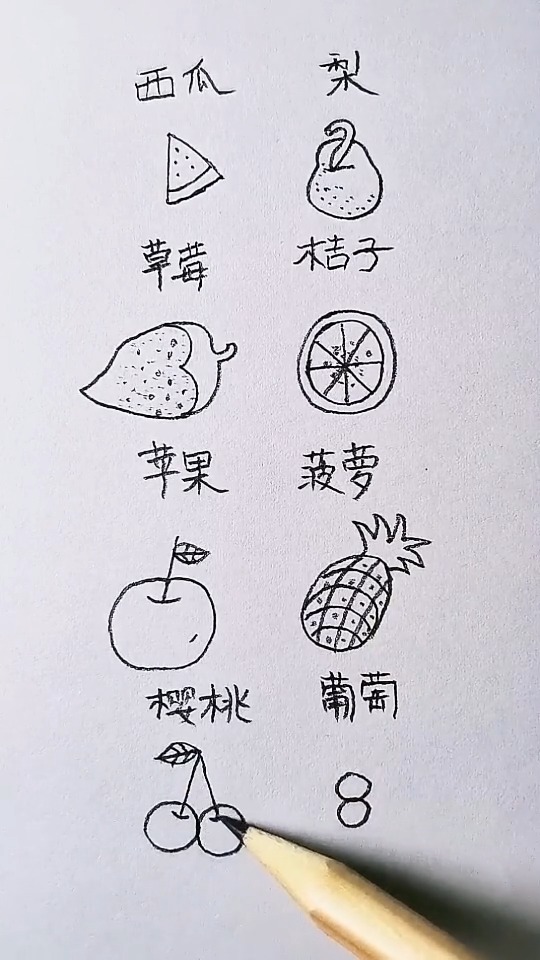 西瓜 梨
草莓 桔子
苹果 菠萝
樱桃 葡萄
8